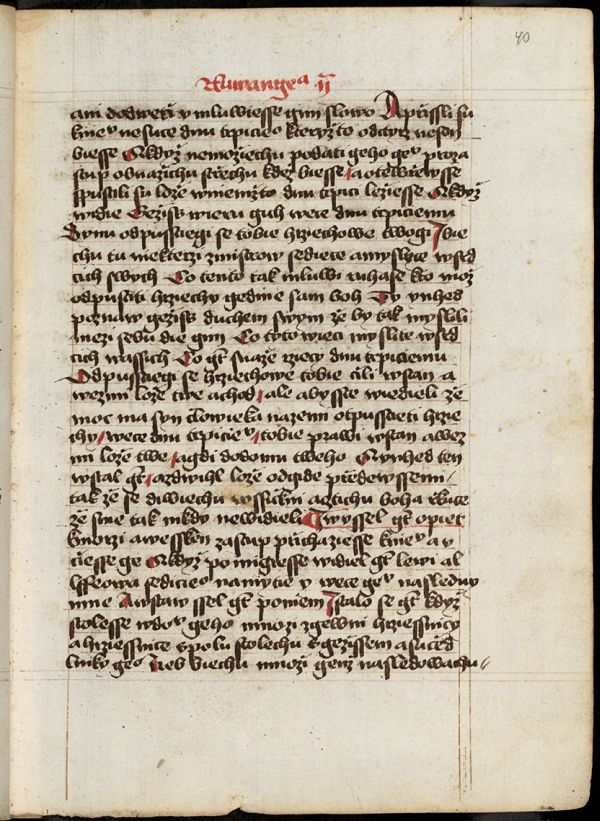 40
ani dodweři y mluwiesse gim slowo A přissli su
k niemu nesuce dnu trpicieho kteryžto odctyř nesen
biesse A když nemožiechu podati geho gemu pro za
stup obnažichu střechu kdež biesse a otewřewsse
spustili su lože w niemžto dnu trpici ležiesse A když
widie Gežiss wieru gich wece dnu trpiciemu
Synu odpusstiegi se tobie hrziechowe twogi Bie
chu tu niekteři z mistrow sediece a myslyce w srd
cich swych Co tento tak mluwi ruhase kto mož
odpustiti hrziechy gedine sam boh Ty ynhed
poznaw gežiss duchem swym že by tak myslili
mezi sebu die gim Co tyto wieci myslite w srd
cich wassich Co gest snaze rzieci dnu trpiciemu
Odpusstiegi se hrziechowe tobie cili wstan a
wezmi lože twe a chod ale abysste wiedieli že
moc ma syn člowieka na zemi otpusstieti hrzie
chy wece dnu trpiciemu tobie prawi wstan a wez
mi lože twe a gdi do domu tweho A ynhed ten
wstal gest a zdwihl lože odgide přede wssemi
tak že se diwiechu wssickni a ctichu boha řkuce
že sme tak nikdy newidieli A wyssel gest opiet
k morzi a wessken zastup prichaziesse k niemu a u
čiesse ge A když pomigiesse widiel gest lewi al
sfeowa sedicieho na mytie y wece gemu nasleduy
mne A wstaw ssel gest po niem I stalo se gest když
stolesse w domu geho mnozi zgewni hrziessnicy
a hrziessnice spolu stolechu s gežissem a s učed
lniky geho neb biechu mnozi genž nasledowachu